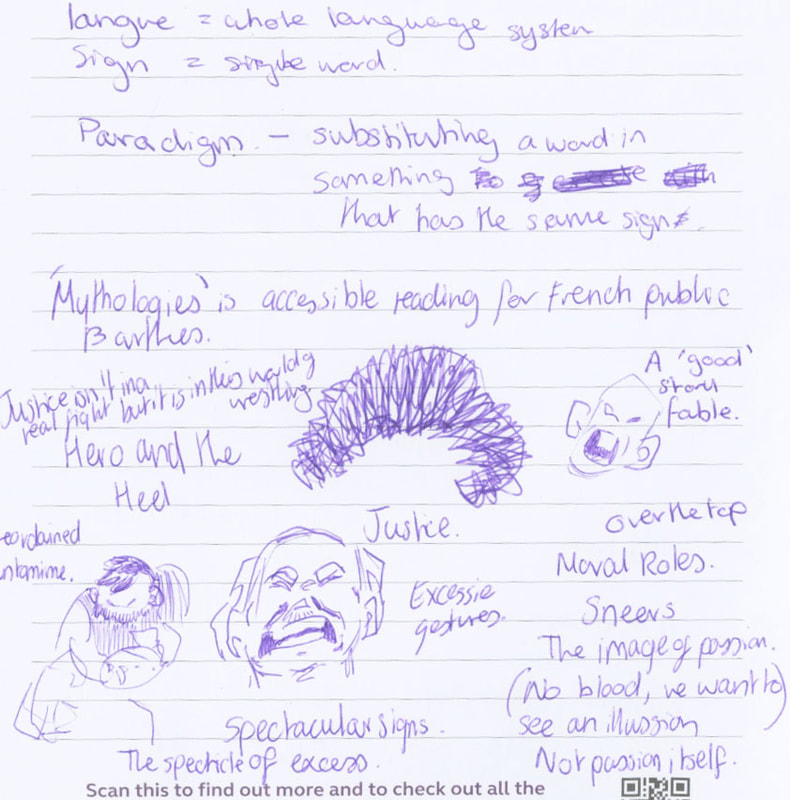 langue = whole language system
Sign = single word.
Paradigm - substituting a word in
something
that has the same sign
'Mythologies' is accessible reading for French public
Barthes.
Justice isn't in a
real fight but it is in this world of
wrestling
A 'good'
story
fable.
Hero and the
Heel
Justice.
over the top
Moral Roles.
eordained
ntomime.
Excessie
gestures.
Sneers
The image of passion.
(No blood, we want to)
see an illussion
Not passion itself.
Spectacular signs.
The specticle of excess.
Scan this to find out more and to check out all the